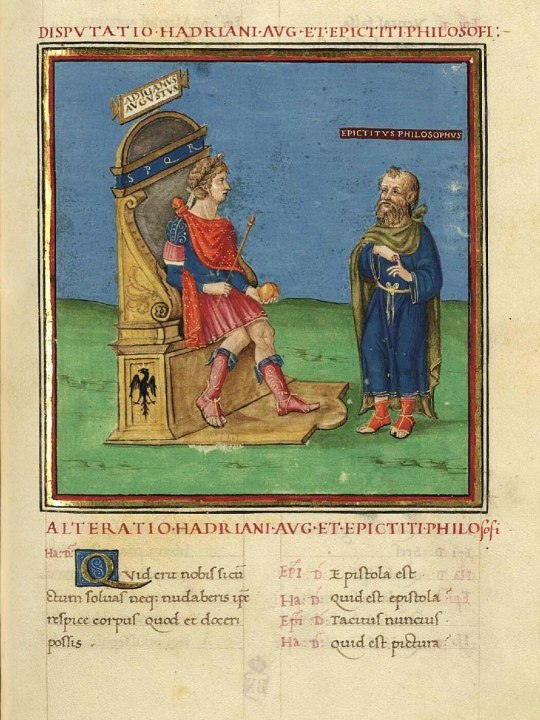 DISPVTATIO·HADRIANI·AVG·ET·EPICTITI·PHILOSOFI:~
ADRIANUS
AVGVSTVS
S P Q R
EPICTITVS PHILOSOPHVS
ALTERATIO·HADRIANI·AVG·ET·EPICTITI·PHILOSOfi
Ha: D:
Quid erit nobis si cin
ctum solvas neq: nudaberis ipse
respice corpus quod et doceri
possis .
EPI D: Epistola est
Ha: D: Quid est epistola
EPI D: Tacitus nuncius
Ha: D: quid est pictura